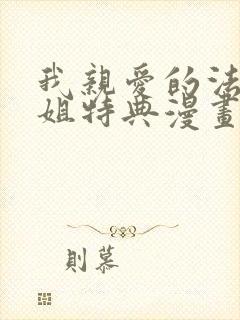 我親愛的法
姐特典漫畫
則慕